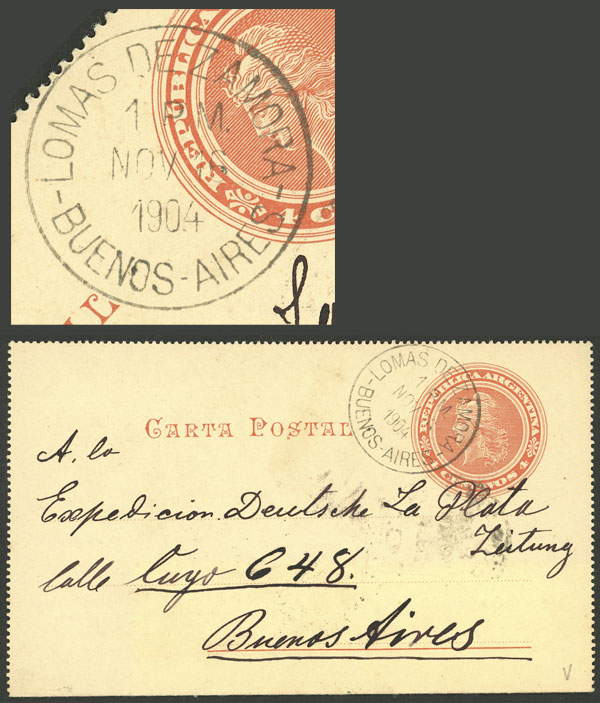 LOMAS DE ZAMORA
1 P.M.
NOV 16
1904
BUENOS-AIRES
REPUBLICA
4 C
LOMAS DE ZAMORA
1 P.M.
NOV
1904
BUENOS-AIRES
REPUBLICA ARGENTINA
4 CENTAVOS 4
CARTA POSTAL
A. la
Expedicion Deutsche La Plata
Zeitung
Calle Cuyo 648.
Buenos Aires
V